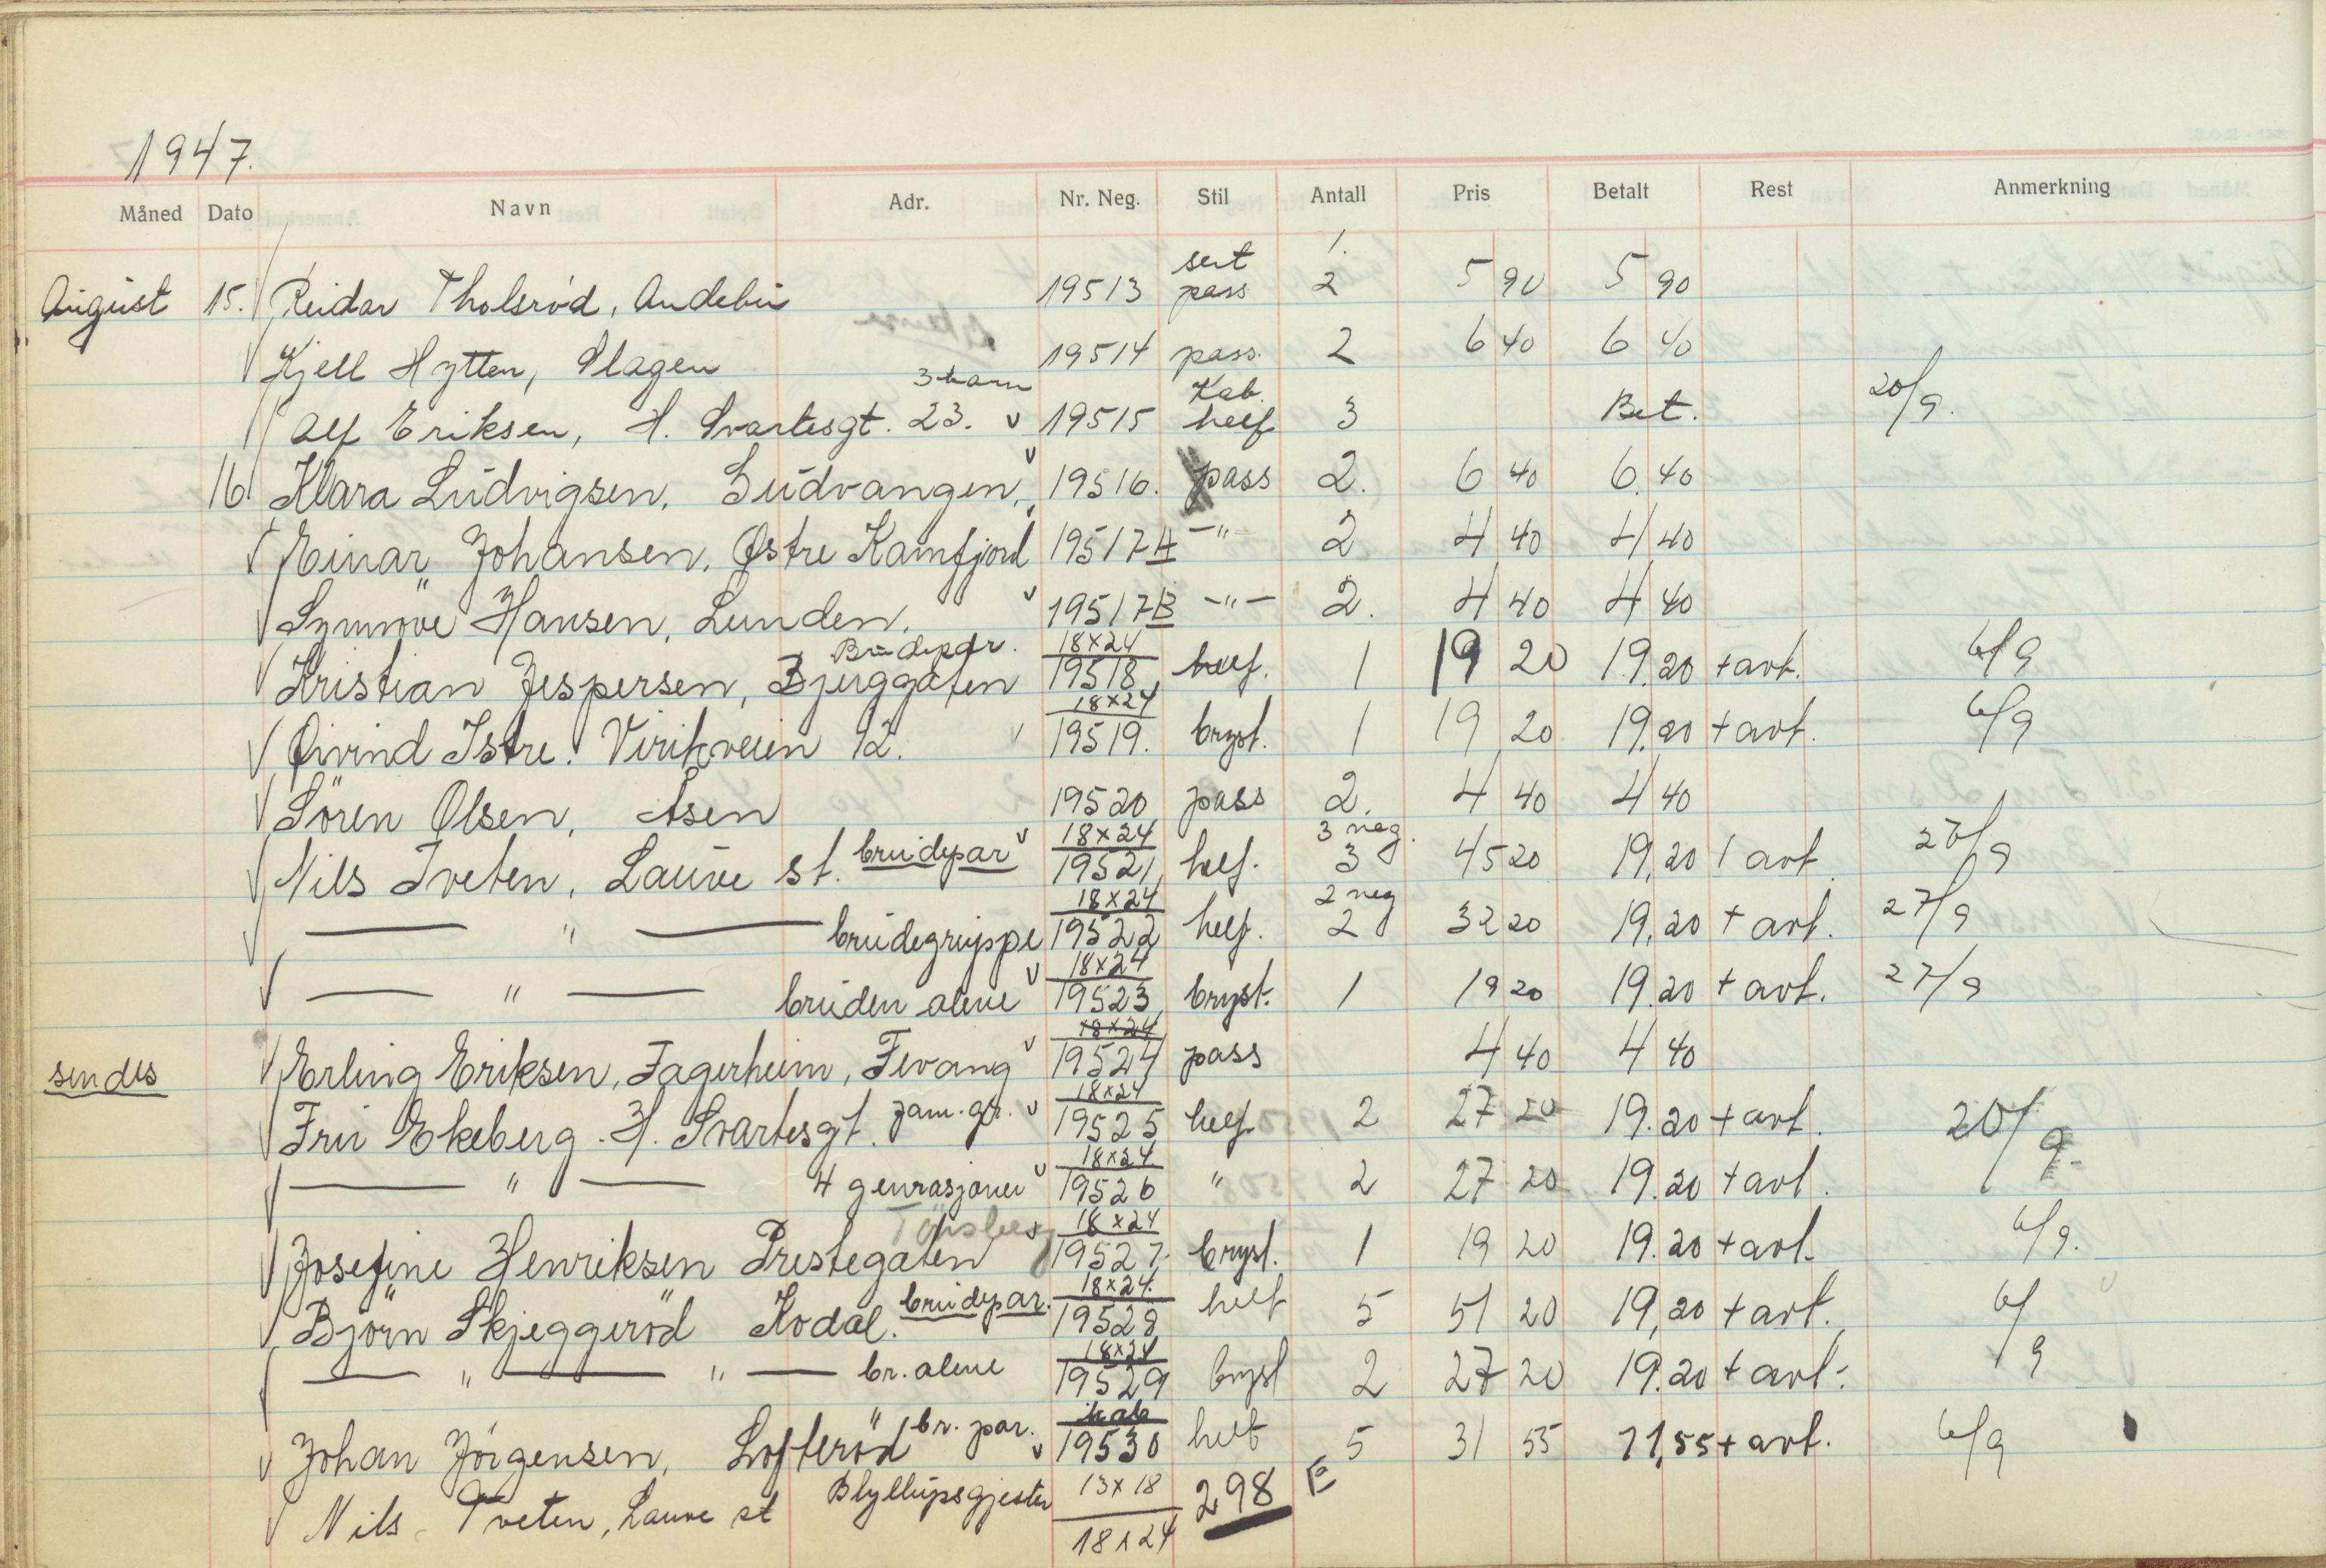 1947.
Måned Dato Navn Adr. Nr. Neg. Stil Antall Pris Betalt Rest Anmerkning
sert 1.
August 15. Reidar Tholsröd, Andebu 19513 pass 2 5 90 5 90
Kjell Hytten, Slagen 19514 pass. 2 6 40 6 40
3 barn Kab.
Alf Eriksen, H. Svartesgt. 23. v 19515 helf 3 Bet. 20/9.
16 Klara Ludvigsen, Gudvangen, v 19516. pass 2. 6 40 6.40
Einar Johansen, Østre Kamfjord 19517A -"- 2 4 40 4 40
Synnöve Hansen, Lunden. v 19517B -"- 2. 4 40 4 40
Brudepar. 18x24
Kristian Jespersen, Bjerggaten 19518 helf. 1 19 20 19.20 + avt. 6/9
18x24
Øivind Istre. Virikveien 12. v 19519. bryst. 1 19 20 19.20 + avt. 6/9
Sören Olsen, Åsen 19520 pass 2. 4 40 4 40
brudepar v 18x24 3 neg.
Nils Tveten, Lauve st. 19521 helf. 3 45 20 19,20 1 avt. 27/9
18x24 2 neg
— " — brudegruppe 19522 helf. 2 32 20 19,20 + avt. 27/9
v 18x24
— " — bruden alene 19523 bryst. 1 19 20 19.20 + avt. 27/9
18x24
sendes Erling Eriksen, Fagerheim, Fevang v 19524 pass 4 40 4 40
18x24
Fru Ekeberg. H. Svartesgt. fam. gr. v 19525 helf 2 27 20 19.20 + avt. 20/9-
18x24
— " — 4 genrasjoner v 19526 " 2 27 20 19.20 + avt.
Tönsberg 18x24
Josefine Henriksen Prestegaten 19527. bryst. 1 19 20 19.20 + avt. 6/9.
brudepar. 18x24.
Björn Skjeggeröd Kodal. 19528 helf 5 51 20 19,20 + avt. 6/9
18x24
— " — " — br. alene 19529 bryst 2 27 20 19.20 + avt.
br. par. kab
Johan Jörgensen, Lofteröd v 19530 helf 5 31 55 11,55 + avt. 6/9
Nils Tveten, Lauve st Bryllupsgjester 13x18 298
18x24